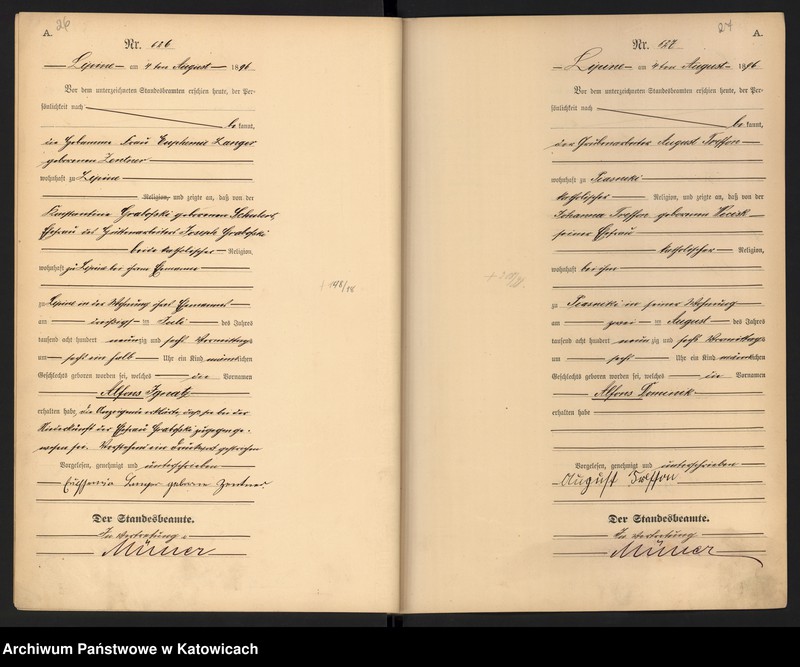 26
A.
Nr. 126
Lipine am 4ten August 1896
Vor dem unterzeichneten Standesbeamten erschien heute, der Per-
sönlichkeit nach
be kannt,
die Hebamme Frau Euphemie Langer
geborenen Zentner
wohnhaft zu Lipine
Religion, und zeigte an, daß von der
geborenen
Ehefrau des Joseph
beide katholischer Religion,
wohnhaft zu Lipine bei ihrem Ehemanne
zu Lipine in der Wohnung ihres Ehemannes
am im Juli des Jahres
tausend acht hundert neunzig und sechs Vormittags
um sechs ein halb Uhr ein Kind männlichen
Geschlechts geboren worden sei, welches die Vornamen
Alfons Ignatz
erhalten habe, die Anzeigende erklärte, daß sie bei der
Niederkunft der Ehefrau zugegen ge-
wesen sei. Vorstehend ein Druckwort gestrichen
Vorgelesen, genehmigt und unterschrieben
Langer geborene Zentner
Der Standesbeamte.
In Vertretung
Müller
27
A.
Nr. 127
Lipine am 4ten August 1896
Vor dem unterzeichneten Standesbeamten erschien heute, der Per-
sönlichkeit nach
be kannt,
der August
wohnhaft zu Piasniki
katholischer Religion, und zeigte an, daß von der
Johanna geborenen
seiner Ehefrau
katholischer Religion,
wohnhaft bei ihm
zu Piasniki in seiner Wohnung
am zwei ten August des Jahres
tausend acht hundert neun zig und sechs Vormittags
um sechs Uhr ein Kind männlichen
Geschlechts geboren worden sei, welches die Vornamen
Alfons Dominik
erhalten habe
Vorgelesen, genehmigt und unterschrieben
August
Der Standesbeamte.
In Vertretung
Müller
Archiwum Państwowe w Katowicach